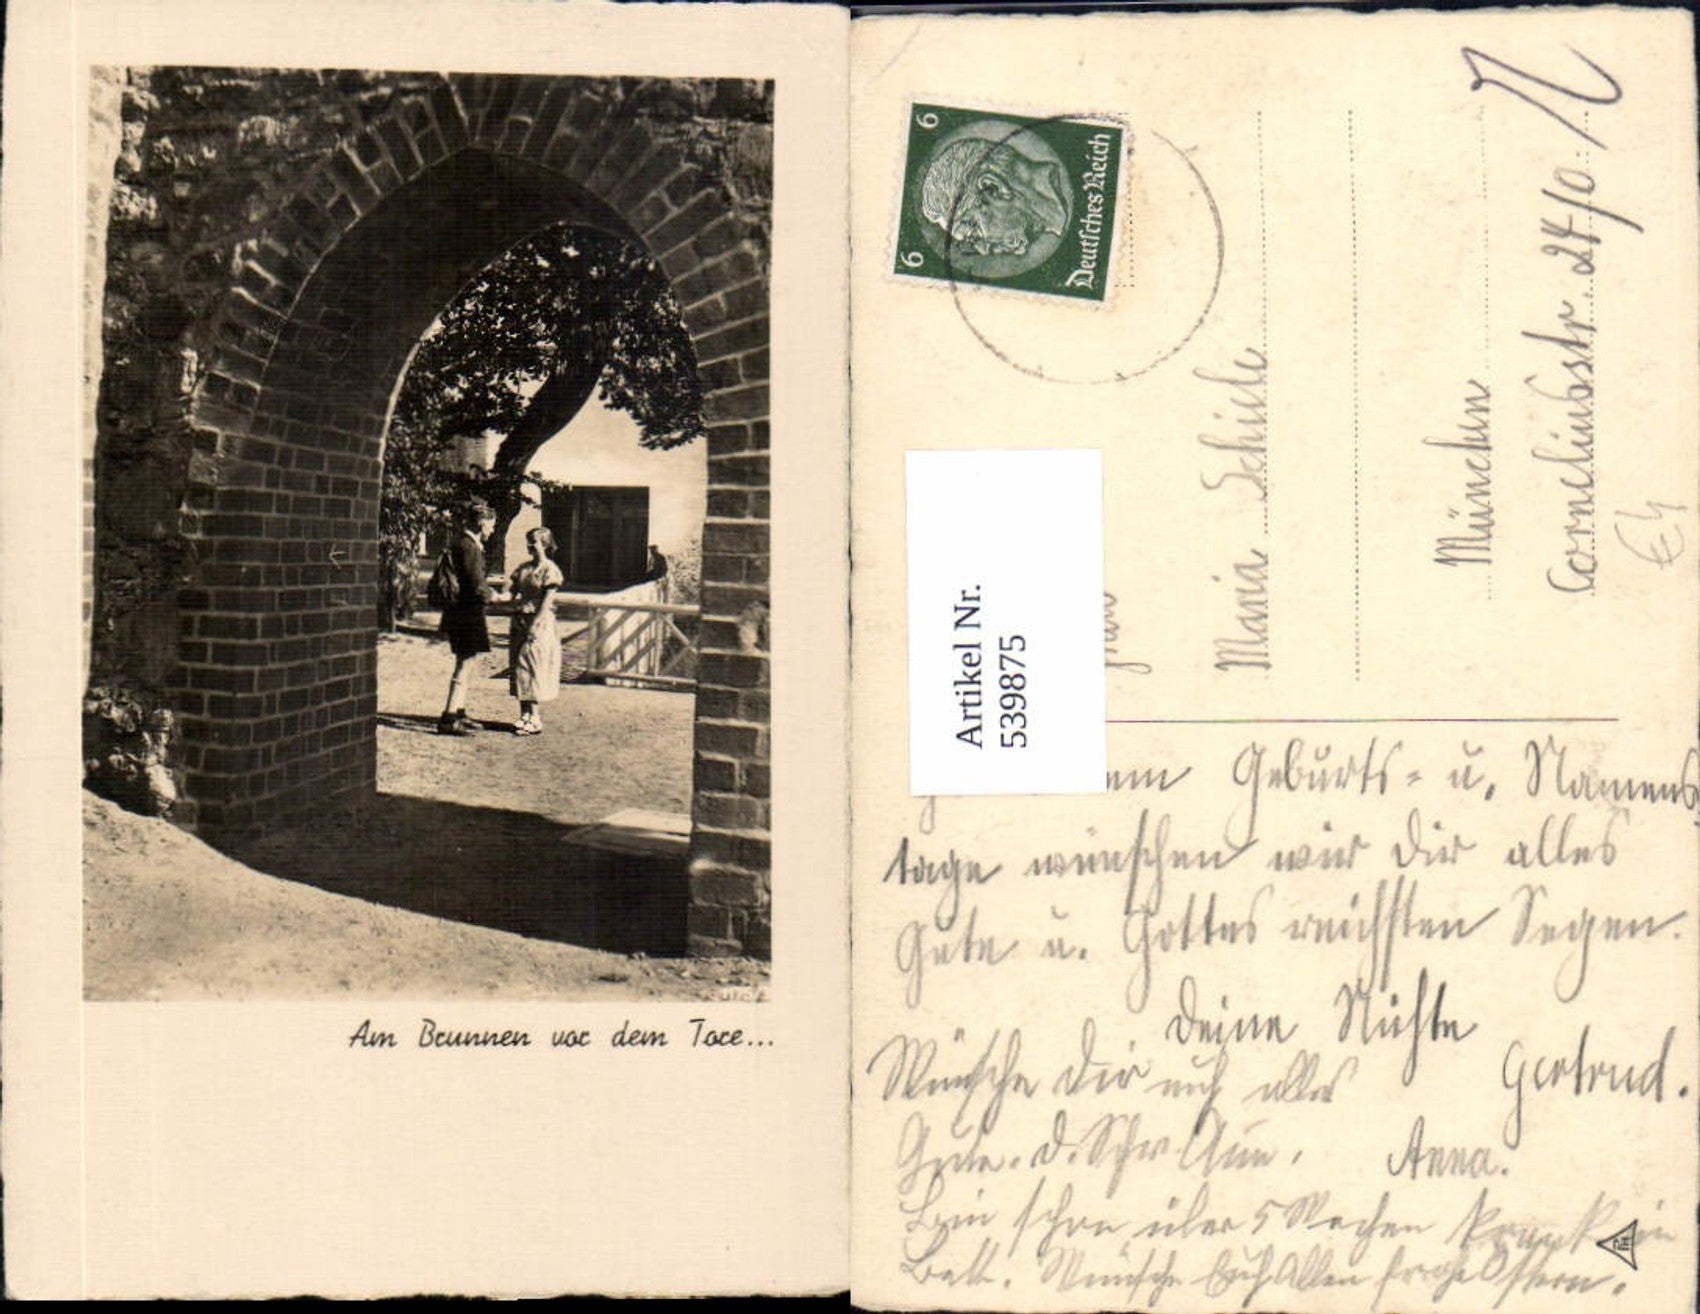 Am Brunnen vor dem Tore...
6
6
Deutsches Reich
Artikel Nr.
539875
Maria Schiele
München
Corneliusstr. 24/0.
Geburts- u. Namens
tage wünschen wir Dir alles
Gute u. Gottes reichsten Segen.
Deine Nichte
Gertrud.
Wünsche Dir auch alles
Gute. d. Schw. Anna.
Bin schon über 5 Wochen krank im
Bett. Wünsche Euch Allen frohe Ostern.